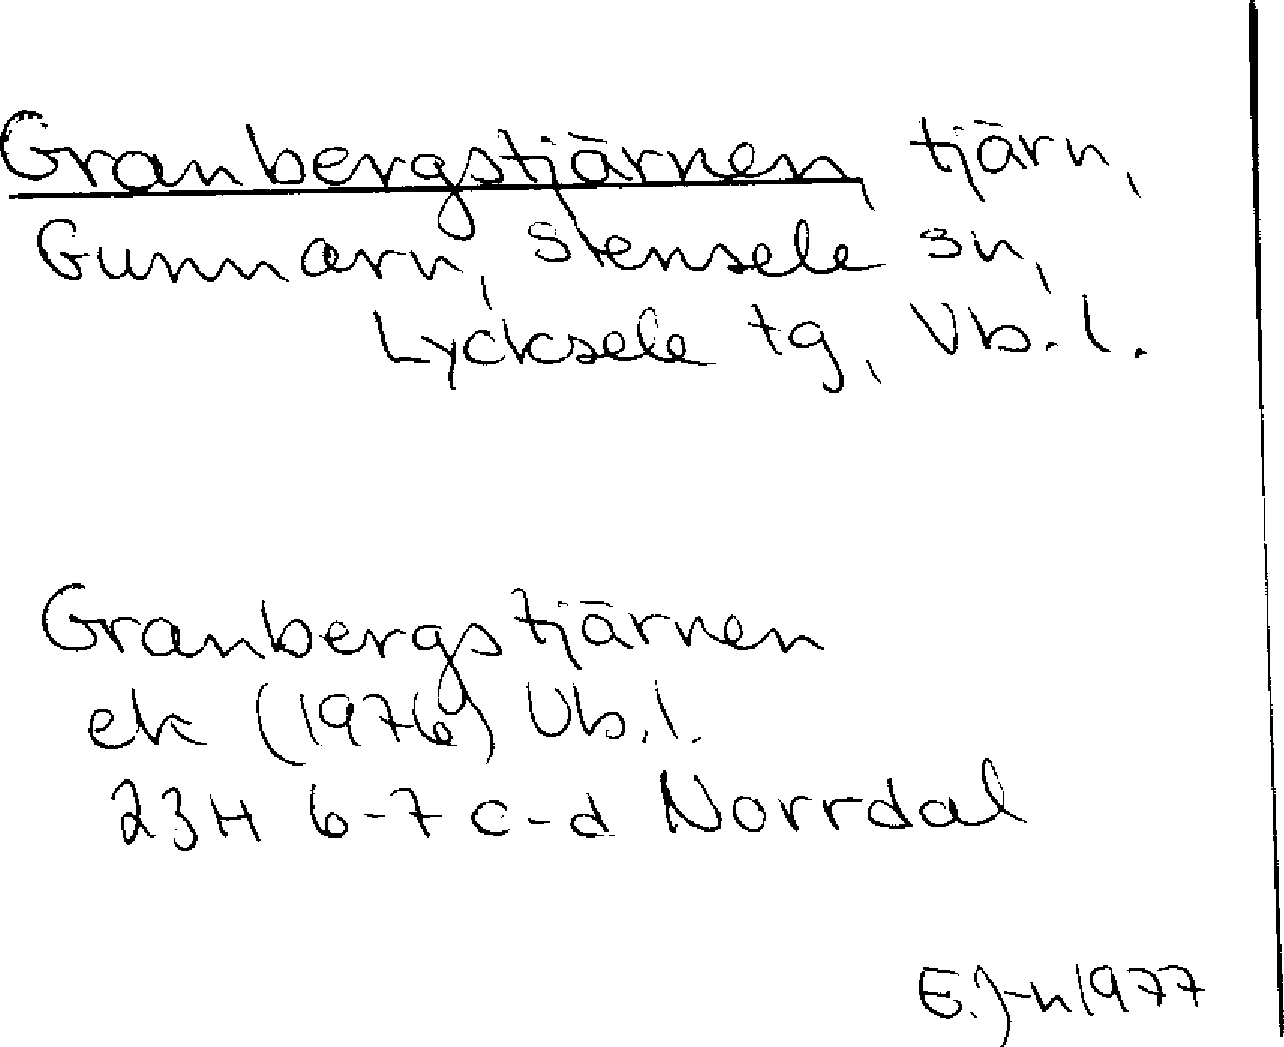 Granbergstjärnen, tjärn,
Gunnarn, Stensele sn,
Lycksele tg, Vb.l.
Granbergstjärnen
ek (1976) Vb.l.
23H 6-7 c-d Norrdal
E.J-n 1977